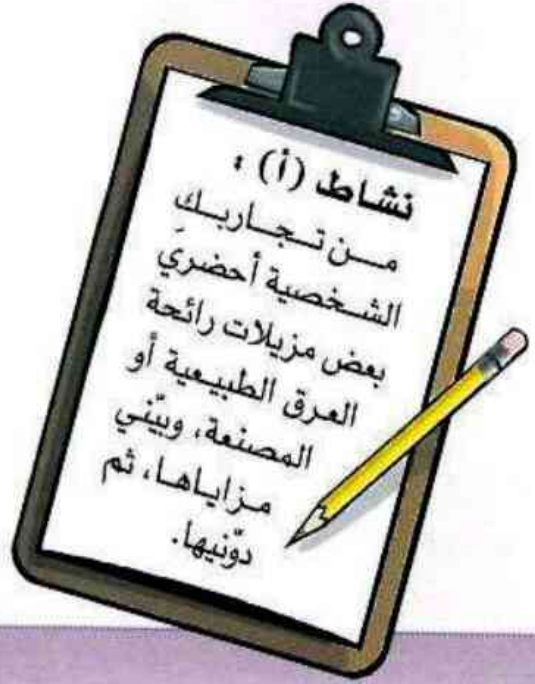 نشاط (أ) :
مــن تـجـاربـكِ
الشـخصية أحضري
بعض مزيلات رائحة
العرق الطبيعية أو
المصنعة، وبيّني
مـزايـاهـا، ثم
دوّنيها.